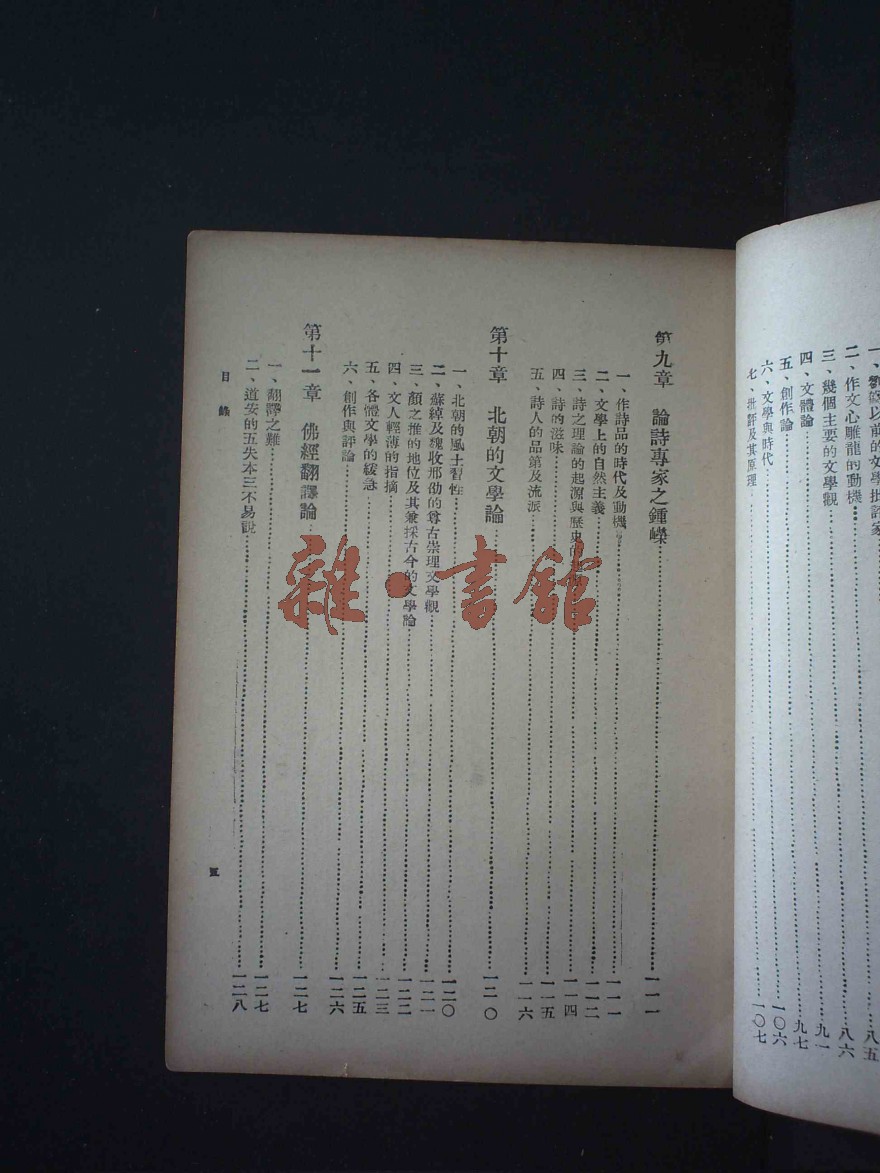 以前的文學批評家……八五
二、作文心雕龍的動機……八六
三、幾個主要的文學觀……九一
四、文體論……九七
五、創作論……一〇六
六、文學與時代
七、批評及其原理……一〇七
第九章　論詩專家之鍾嶸……一一一
一、作詩品的時代及動機……一一一
二、文學上的自然主義……一一二
三、詩之理論的起源與歷史的……一一四
四、詩的滋味……一一五
五、詩人的品第及流派……一一六
第十章　北朝的文學論……一二〇
一、北朝的風土習性……一二〇
二、蘇綽及魏收邢劭的尊古崇理文學觀……一二一
三、顏之推的地位及其兼採古今的文學論……一二二
四、文人輕薄的指摘……一二三
五、各體文學的緩急……一二五
六、創作與評論……一二六
第十一章　佛經翻譯論……一二七
一、翻譯之難……一二七
二、道安的五失本三不易說……一二八
目錄
五
雜·書館